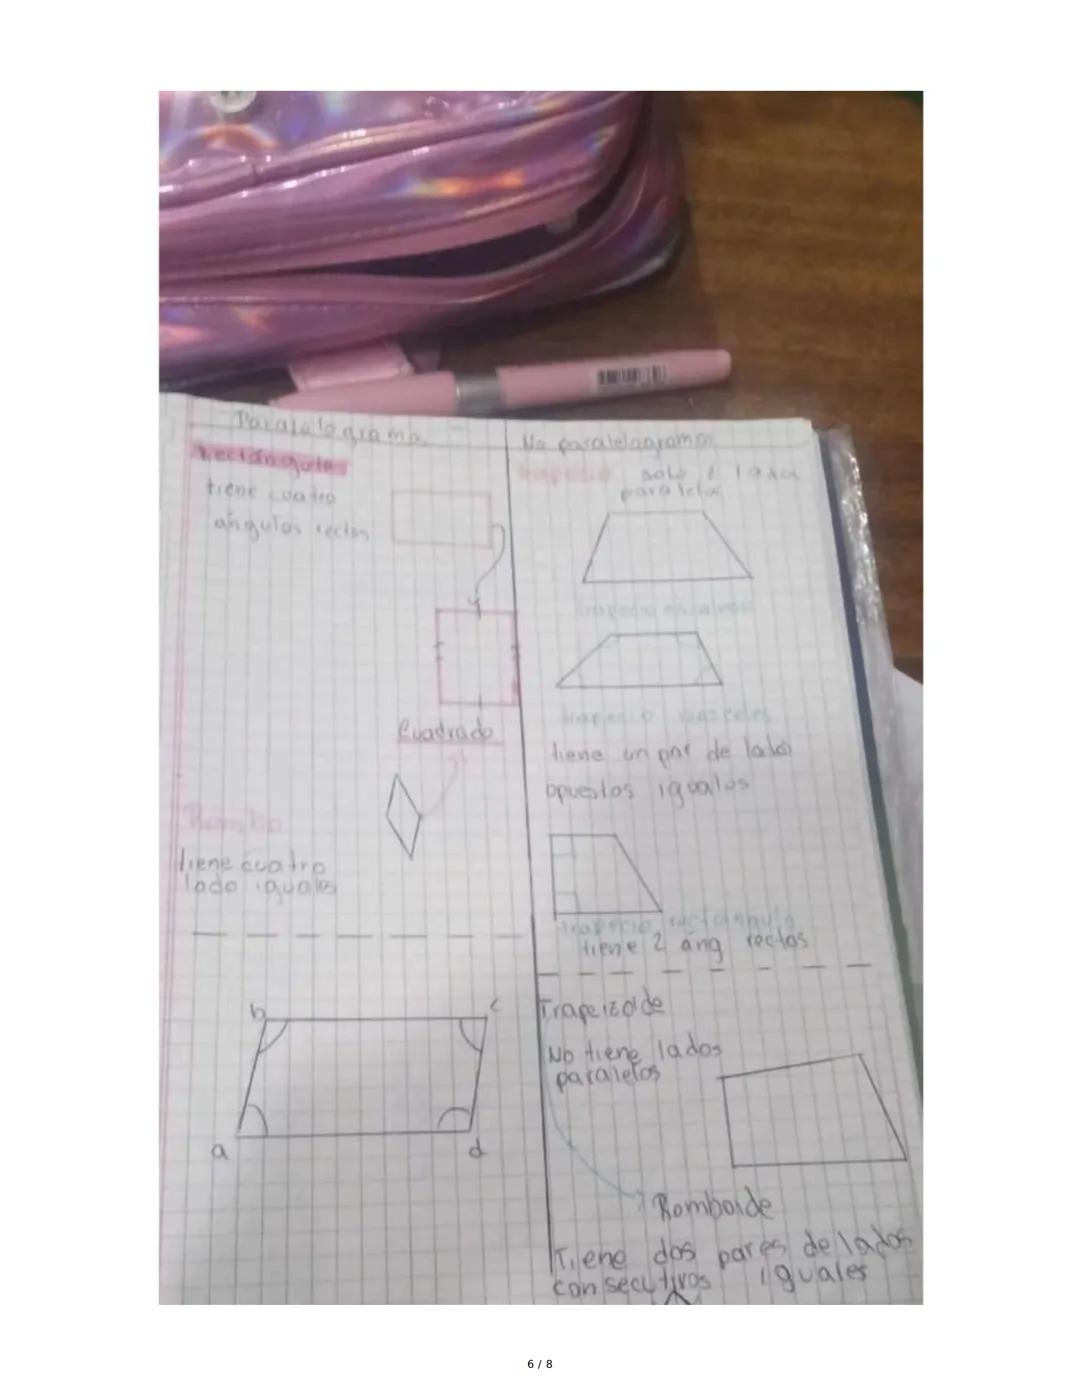 Paralalograma
rectángulo
tiene cuatro
angulos rectos
Cuadrado
Rombo
tiene cuatro
lado iguales
b
c
a
d
No paralelogramos
trapecio solo 2 lados
paralelos
trapecio escaleno
trapecio isosceles
tiene un par de lados
opuestos iguales
trapecio rectangulo
tiene 2 ang rectos
Trapeizoide
No tiene lados
paralelos
Romboide
Tiene dos pares de lados
consecutivos iguales
6 / 8